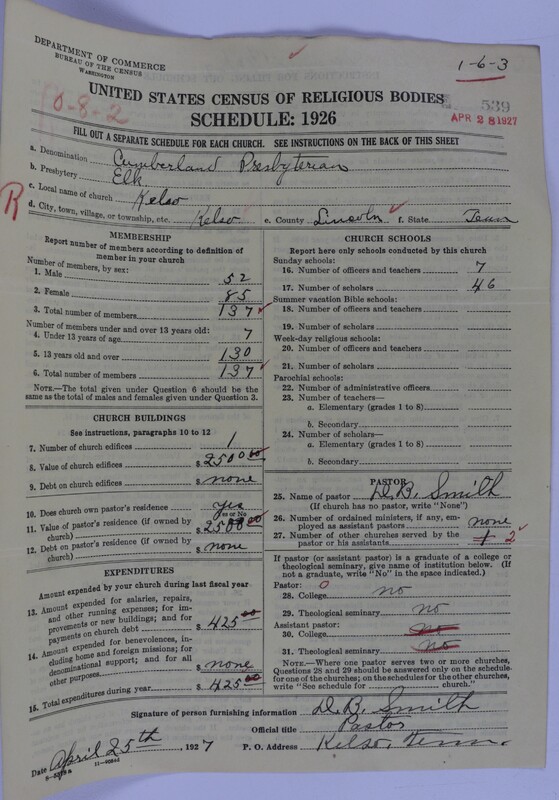 DEPARTMENT OF COMMERCE
BUREAU OF THE CENSUS
WASHINGTON
1-6-3
0-8-2
UNITED STATES CENSUS OF RELIGIOUS BODIES
SCHEDULE: 1926
539
APR 28 1927
FILL OUT A SEPARATE SCHEDULE FOR EACH CHURCH. SEE INSTRUCTIONS ON THE BACK OF THIS SHEET
a. Denomination Cumberland Presbyterian
b. Presbytery Elk
c. Local name of church Kelso
R
d. City, town, village, or township, etc. Kelso e. County Lincoln f. State Tenn
MEMBERSHIP
Report number of members according to definition of
member in your church
Number of members, by sex:
1. Male 52
2. Female 85
3. Total number of members 137
Number of members under and over 13 years old:
4. Under 13 years of age 7
5. 13 years old and over 130
6. Total number of members 137
NOTE.—The total given under Question 6 should be
same as the total of males and females given under Question 3.
CHURCH BUILDINGS
See instructions, paragraphs 10 to 12
7. Number of church edifices 1
8. Value of church edifices $ 2500 00
9. Debt on church edifices $ none
10. Does church own pastor's residence yes
Yes or No
11. Value of pastor's residence (if owned by
church) $ 2500 00
12. Debt on pastor's residence (if owned by
church) $ none
EXPENDITURES
Amount expended by your church during last fiscal year
13. Amount expended for salaries, repairs,
and other running expenses; for im-
provements or new buildings; and for
payments on church debt $ 425 00
14. Amount expended for benevolences, in-
cluding home and foreign missions; for
denominational support; and for all
other purposes $ none
15. Total expenditures during year $ 425 00
CHURCH SCHOOLS
Report here only schools conducted by this church
Sunday schools:
16. Number of officers and teachers 7
17. Number of scholars 46
Summer vacation Bible schools:
18. Number of officers and teachers
19. Number of scholars
Week-day religious schools:
20. Number of officers and teachers
21. Number of scholars
Parochial schools:
22. Number of administrative officers
23. Number of teachers—
a. Elementary (grades 1 to 8)
b. Secondary
24. Number of scholars—
a. Elementary (grades 1 to 8)
b. Secondary
PASTOR
25. Name of pastor D. B. Smith
(If church has no pastor, write "None")
26. Number of ordained ministers, if any, em-
ployed as assistant pastors none
27. Number of other churches served by the
pastor or his assistants 1 2
If pastor (or assistant pastor) is a graduate of a college or
theological seminary, give name of institution below. (If
not a graduate, write "No" in the space indicated.)
Pastor: 0
28. College no
29. Theological seminary no
Assistant pastor:
30. College no
31. Theological seminary no
NOTE.—Where one pastor serves two or more churches,
Questions 28 and 29 should be answered only on the schedule
for one of the churches; on the schedules for the other churches,
write "See schedule for church."
Signature of person furnishing information D. B. Smith
Official title Pastor
Date April 25th, 1927 P. O. Address Kelso, Tenn.